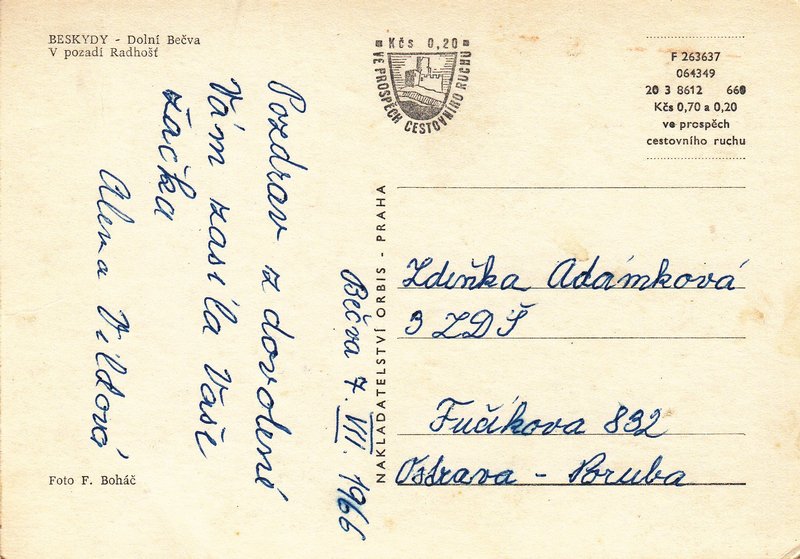 BESKYDY - Dolní Bečva
V pozadí Radhošť
Kčs 0,20
VE PROSPĚCH CESTOVNÍHO RUCHU
F 263637
064349
20 3 8612 660
Kčs 0,70 a 0,20
ve prospěch
cestovního ruchu
Pozdrav z dovolené
Vám zasílá Vaše
žačka
Alena Vildová
Bečva 7. VII. 1966
NAKLADATELSTVÍ ORBIS - PRAHA
Zdeňka Adámková
3 ZDŠ
Fučíkova 832
Ostrava - Poruba
Foto F. Boháč